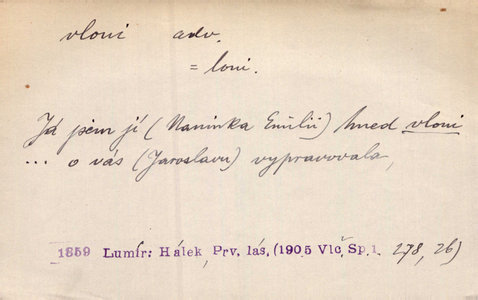 vloni adv.
= loni.
Já jsem jí (Naninka Emilii) hned vloni
... o vás (Jaroslavu) vypravovala,
1859 Lumír: Hálek, Prv. lás. (1905 Vlč. Sp. 1. 278, 26)